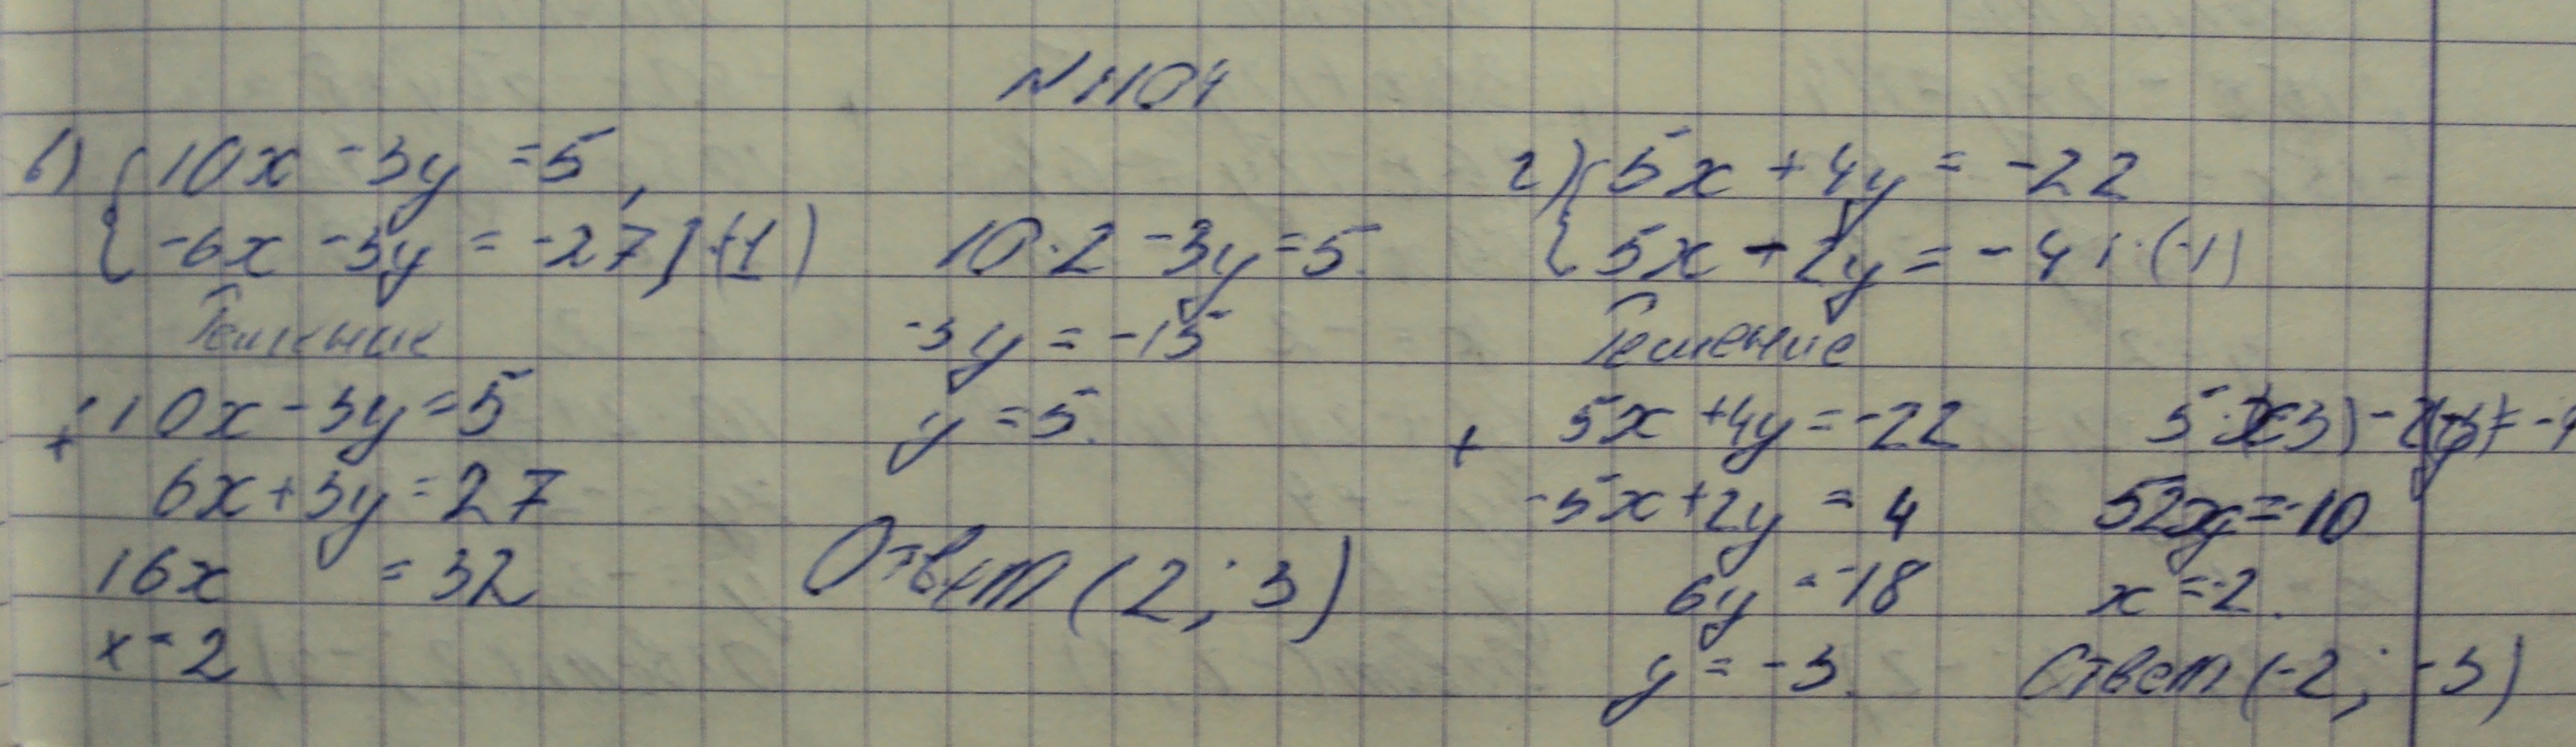 N 1104
в) { 10x - 3y = 5,
-6x - 3y = -27 | ·(-1)
Решение
+ 10x - 3y = 5
6x + 3y = 27
16x = 32
x = 2
10·2 - 3y = 5.
-3y = -15
y = 5.
Ответ (2; 3)
г) { 5x + 4y = -22
5x - 2y = -4 | ·(-1)
Решение
+ 5x + 4y = -22
-5x + 2y = 4
6y = -18
y = -3.
= -10
x = -2.
Ответ (-2; -3)